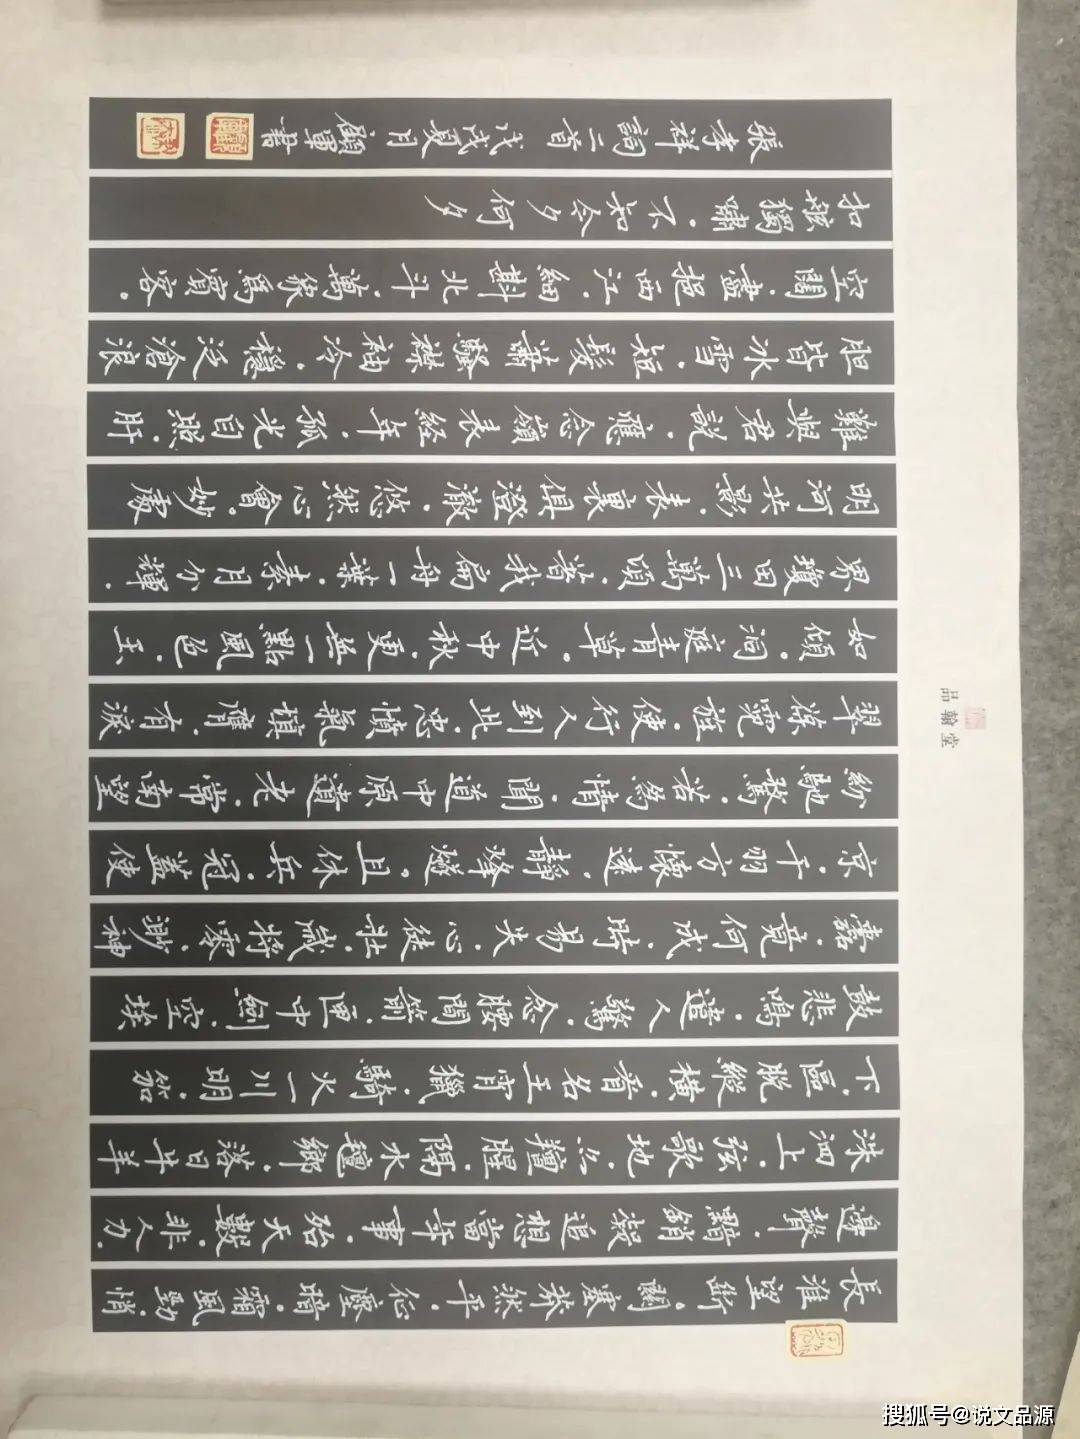 長淮望斷。關塞莽然平。征塵暗。霜風勁。悄
邊聲。黯銷凝。追想當年事。殆天數。非人力。
洙泗上。弦歌地。亦羶腥。隔水氈鄉。落日牛羊
下。區脫縱橫。看名王宵獵。騎火一川明。笳
鼓悲鳴。遣人驚。念腰間箭。匣中劍。空埃
蠹。竟何成。時易失。心徒壯。歲將零。渺神
京。干羽方懷遠。靜烽燧。且休兵。冠蓋使
紛馳騖。若為情。聞道中原遺老。常南望
翠葆霓旌。使行人到此。忠憤氣填膺。有淚
如傾。洞庭青草。近中秋。更無一點風色。玉
界瓊田三萬頃。著我扁舟一葉。素月分輝。
明河共影。表裏俱澄澈。悠然心會。妙處
難與君說。應念嶺表經年。孤光自照。肝
胆皆冰雪。短髮蕭騷襟袖冷。穩泛滄浪
空闊。盡挹西江。細斟北斗。萬象為賓客。
扣舷獨嘯。不知今夕何夕
張孝祥詞二首 戊戌夏月 顧軍書
品翰堂
搜狐号@说文品源